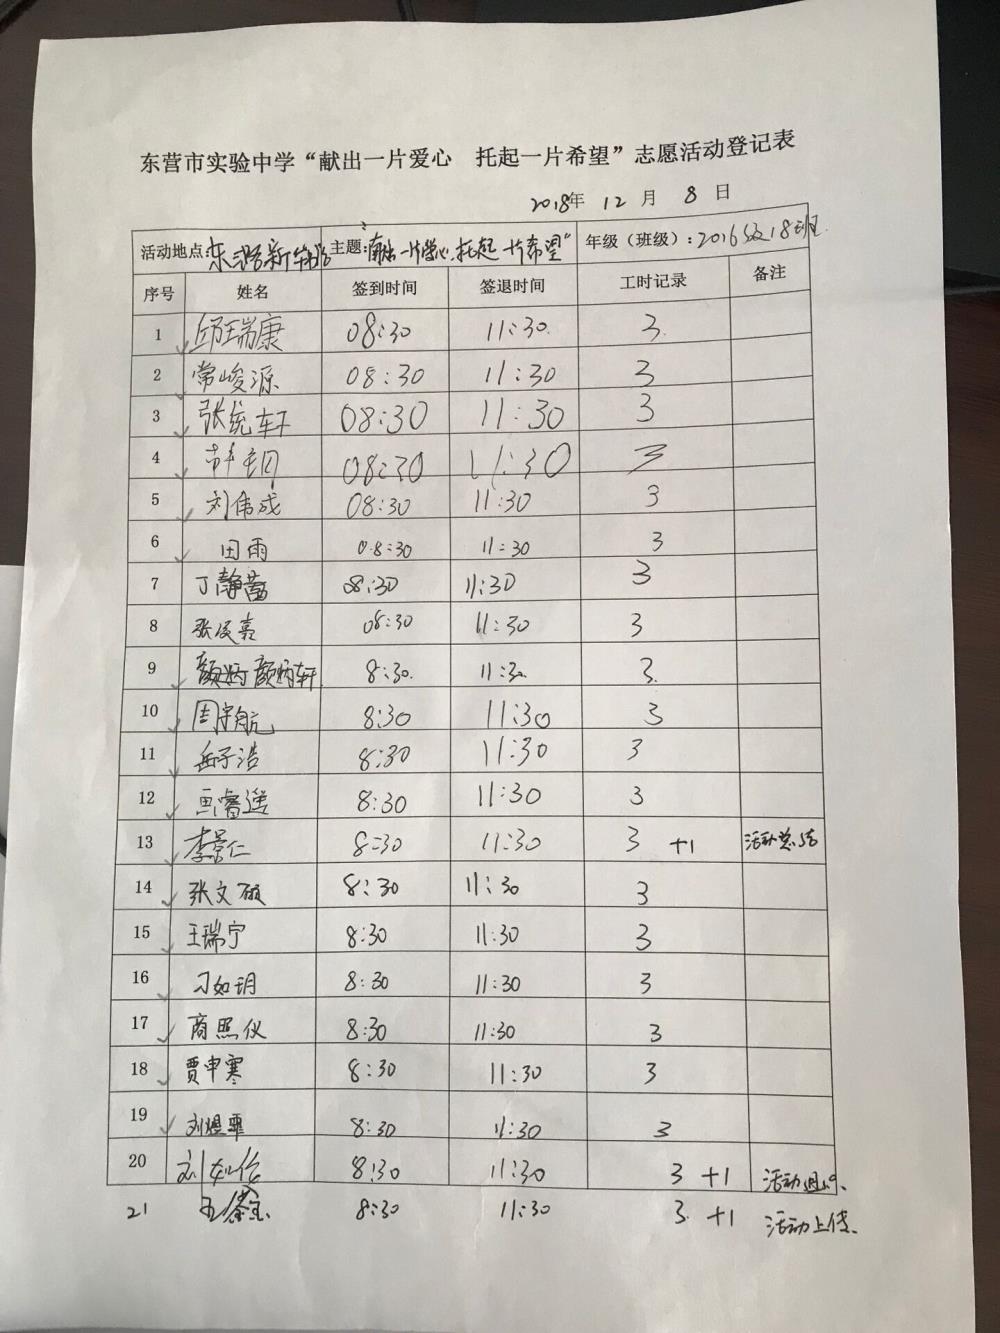 东营市实验中学“献出一片爱心 托起一片希望”志愿活动登记表
2018年 12 月 8 日
活动地点: 主题:“献出一片爱心.托起一片希望” 年级（班级）: 2016级18班
序号 姓名 签到时间 签退时间 工时记录 备注
1 邱瑞康 08:30 11:30 3
2 常峻源 08:30 11:30 3
3 张统轩 08:30 11:30 3
4 08:30 11:30 3
5 刘伟成 08:30 11:30 3
6 田雨 08:30 11:30 3
7 丁静茜 08:30 11:30 3
8 08:30 11:30 3
9 颜炳轩 8:30 11:30 3
10 周宇航 8:30 11:30 3
11 岳子浩 8:30 11:30 3
12 8:30 11:30 3
13 李景仁 8:30 11:30 3 +1 活动总结
14 张文硕 8:30 11:30 3
15 王瑞宁 8:30 11:30 3
16 刁如玥 8:30 11:30 3
17 商照仪 8:30 11:30 3
18 贾申寒 8:30 11:30 3
19 刘煜霏 8:30 11:30 3
20 8:30 11:30 3 +1 活动
21 8:30 11:30 3 +1 活动上传